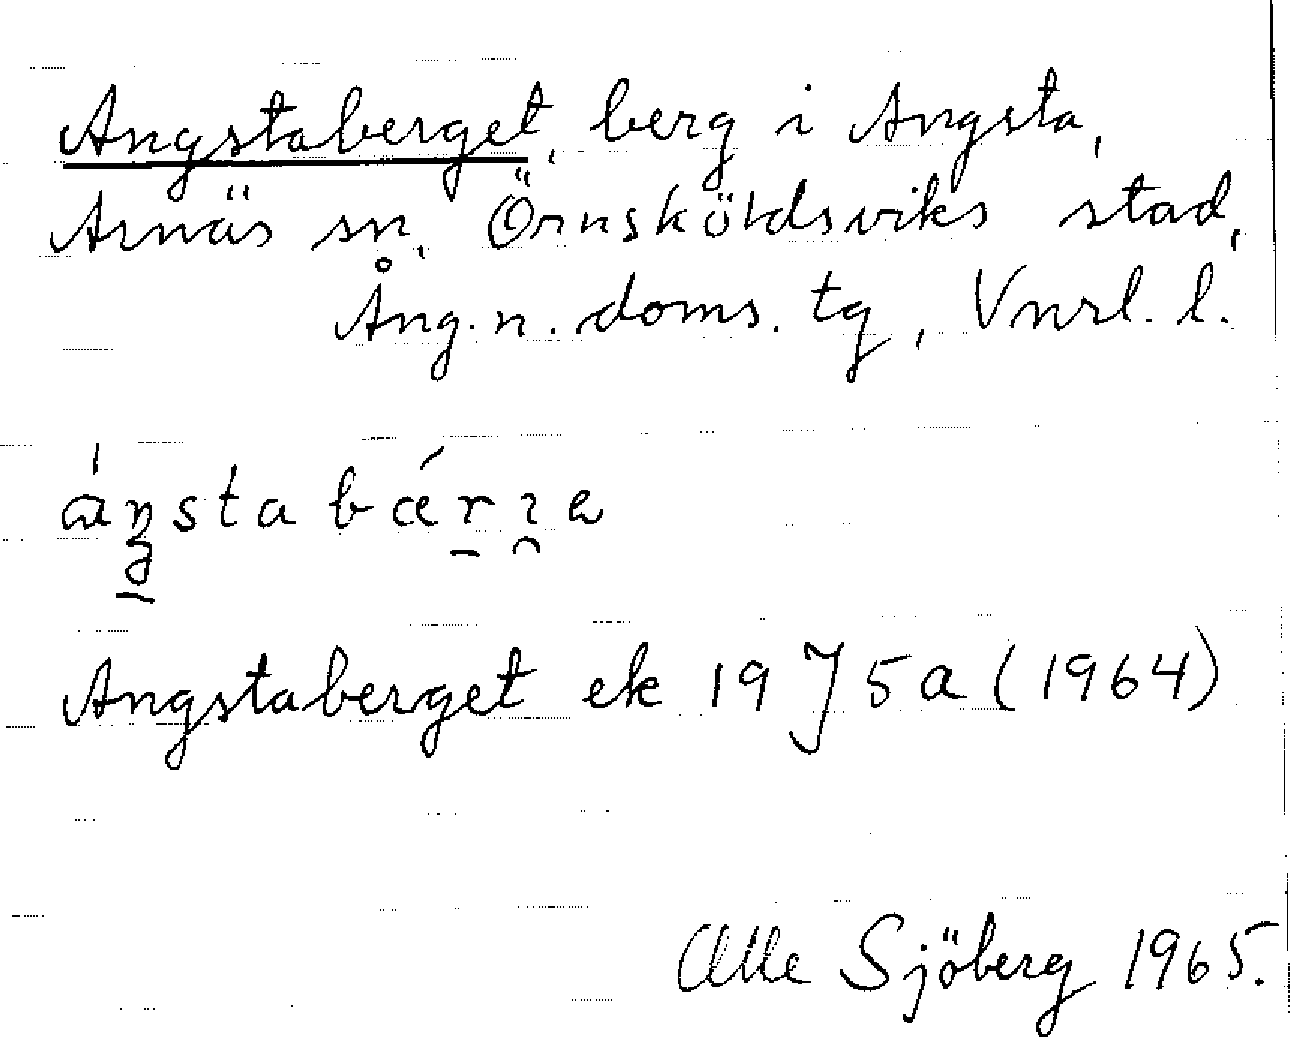 Angstaberget, berg i Angsta,
Arnäs sn, Örnsköldsviks stad,
Ång. n. doms. tg, Vnrl. l.
Angstaberget ek 19 J 5 a (1964)
Sjöberg 1965.